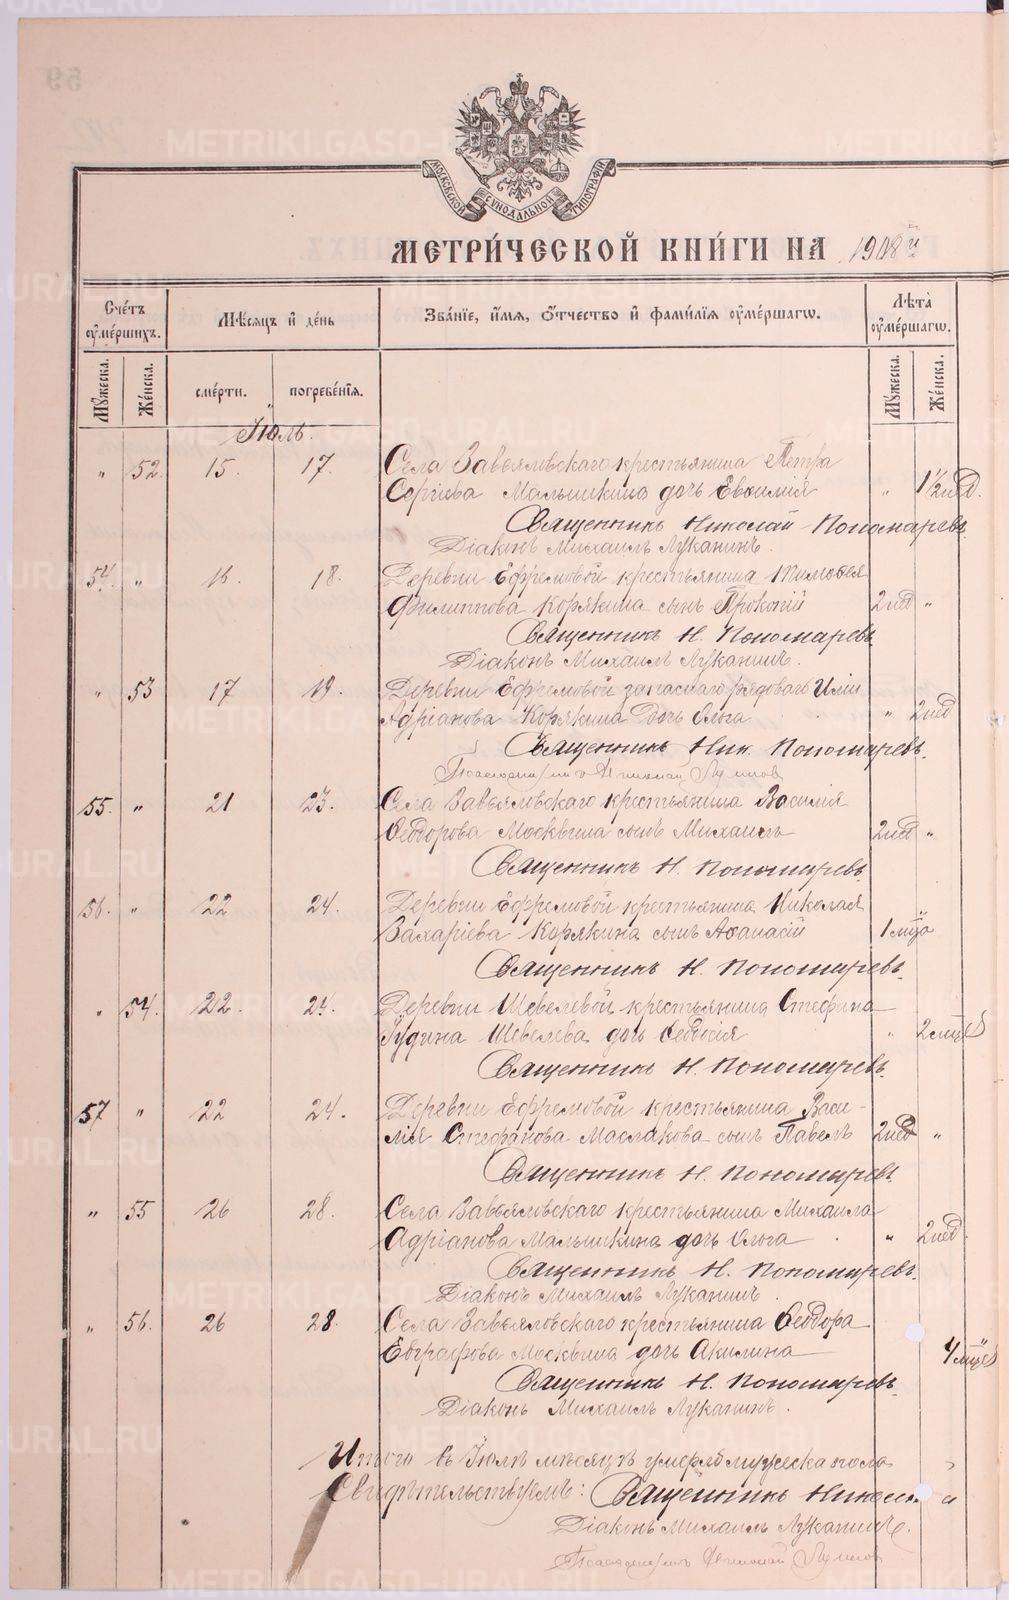 МОСКОВСКОЙ СУНОДАЛЬНОЙ ТИПОГРАФІИ
МЕТРИ́ЧЕСКОЙ КНИ́ГИ НА 1908 й
Счє́тъ ᲂу҆ме́ршихъ.
Мѣ́сѧцъ и҆ де́нь
Зва́нїе, и҆́мѧ, ѻ҆́тчество и҆ фами́лїѧ ᲂу҆ме́ршагѡ.
Лѣта̀ ᲂу҆ме́ршагѡ.
Мꙋ́жеска. Же́нска. сме́рти. погребе́нїѧ. Мꙋ́жеска. Же́нска.
Іюль.
" 52. 15. 17. Села Завьяловскаго крестьянина Петра
Сергіева Малышкина дочь Евѳимія " 1 1/2 нед.
Священникъ Николай Пономаревъ.
Діаконъ Михаилъ Луканинъ.
54. " 16. 18. Деревни Ефремовой крестьянина Тимоѳея
Филиппова Корякина сынъ Прокопій 2 нед "
Священникъ Н. Пономаревъ
Діаконъ Михаилъ Луканинъ.
" 53 17 19. Деревни Ефремовой запаснаго рядоваго Иліи
Адріанова Корякина дочь Ольга " 2 нед
Священникъ Ник. Пономаревъ.
55. " 21 23. Села Завьяловскаго крестьянина Василія
Ѳеодорова Москвина сынъ Михаилъ 2 нед "
Священникъ Н. Пономаревъ.
56. " 22 24. Деревни Ефремовой крестьянина Николая
Захаріева Корякина сынъ Аѳанасій 1 мца "
Священникъ Н. Пономаревъ.
" 54. 22. 24. Деревни Шевелевой крестьянина Стефана
Іудина Шевелева дочь Ѳеодосія " 2 мцев
Священникъ Н. Пономаревъ.
57 " 22 24. Деревни Ефремовой крестьянина Васи-
лія Стефанова Маслакова сынъ Павелъ 2 нед "
Священникъ Н. Пономаревъ.
" 55 26 28. Села Завьяловскаго крестьянина Михаила
Адріанова Малышкина дочь Ольга " 2 нед.
Священникъ Н. Пономаревъ.
Діаконъ Михаилъ Луканинъ.
" 56. 26 28. Села Завьяловскаго крестьянина Ѳеодора
Евграфова Москвина дочь Акилина 4 мцев
Священникъ Н. Пономаревъ.
Діаконъ Михаилъ Луканинъ.
Итого въ Іюлѣ мѣсяцѣ умерло мужеска пола
Свидѣтельствуемъ: Священникъ
Діаконъ Михаилъ Луканинъ.
METRIKI.GASO-URAL.RU